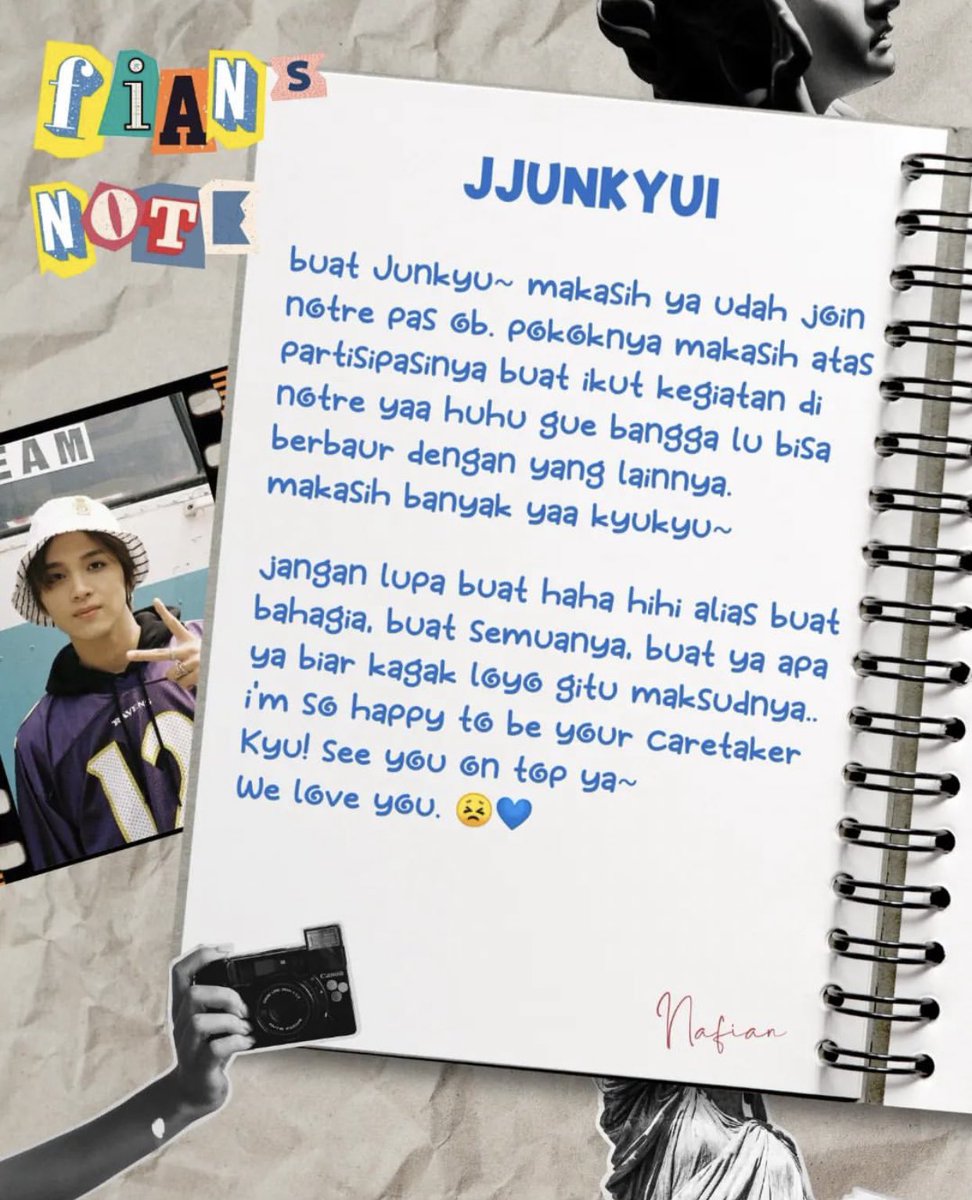 fiAN s
NOTE
JJUNKYUI
buat Junkyu~ makasih ya udah join
notre pas ob. pokoknya makasih atas
partisipasinya buat ikut kegiatan di
notre yaa huhu gue bangga lu bisa
berbaur dengan yang lainnya.
makasih banyak yaa kyukyu~
jangan lupa buat haha hihi alias buat
bahagia, buat semuanya, buat ya apa
ya biar kagak loyo gitu maksudnya..
i'm so happy to be your caretaker
Kyu! see you on top ya~
We love you. 😣💙
EAM
RAVENS
12
Canon
Nafian